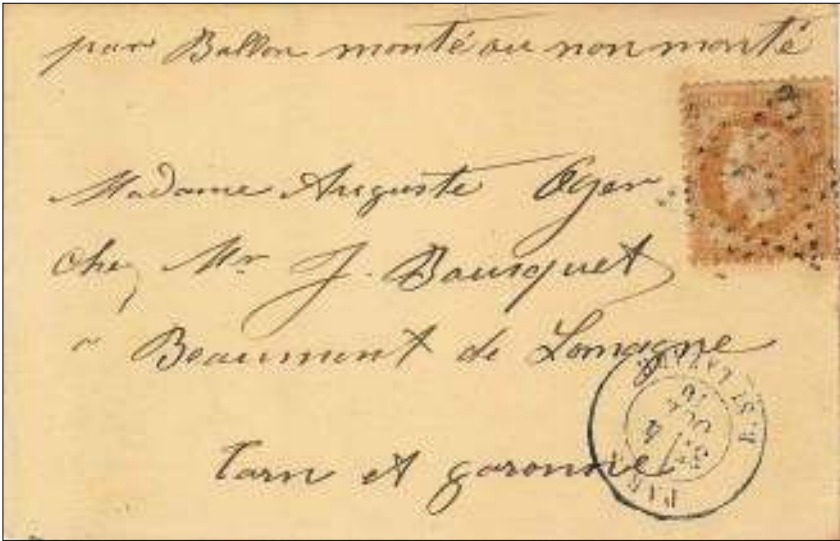 par Ballon monté ou non monté
Madame Auguste Oger
chez Mr J. Bousquet
à Beaumont de Lomagne
Tarn et garonne
PARIS
R. ST LAZARE